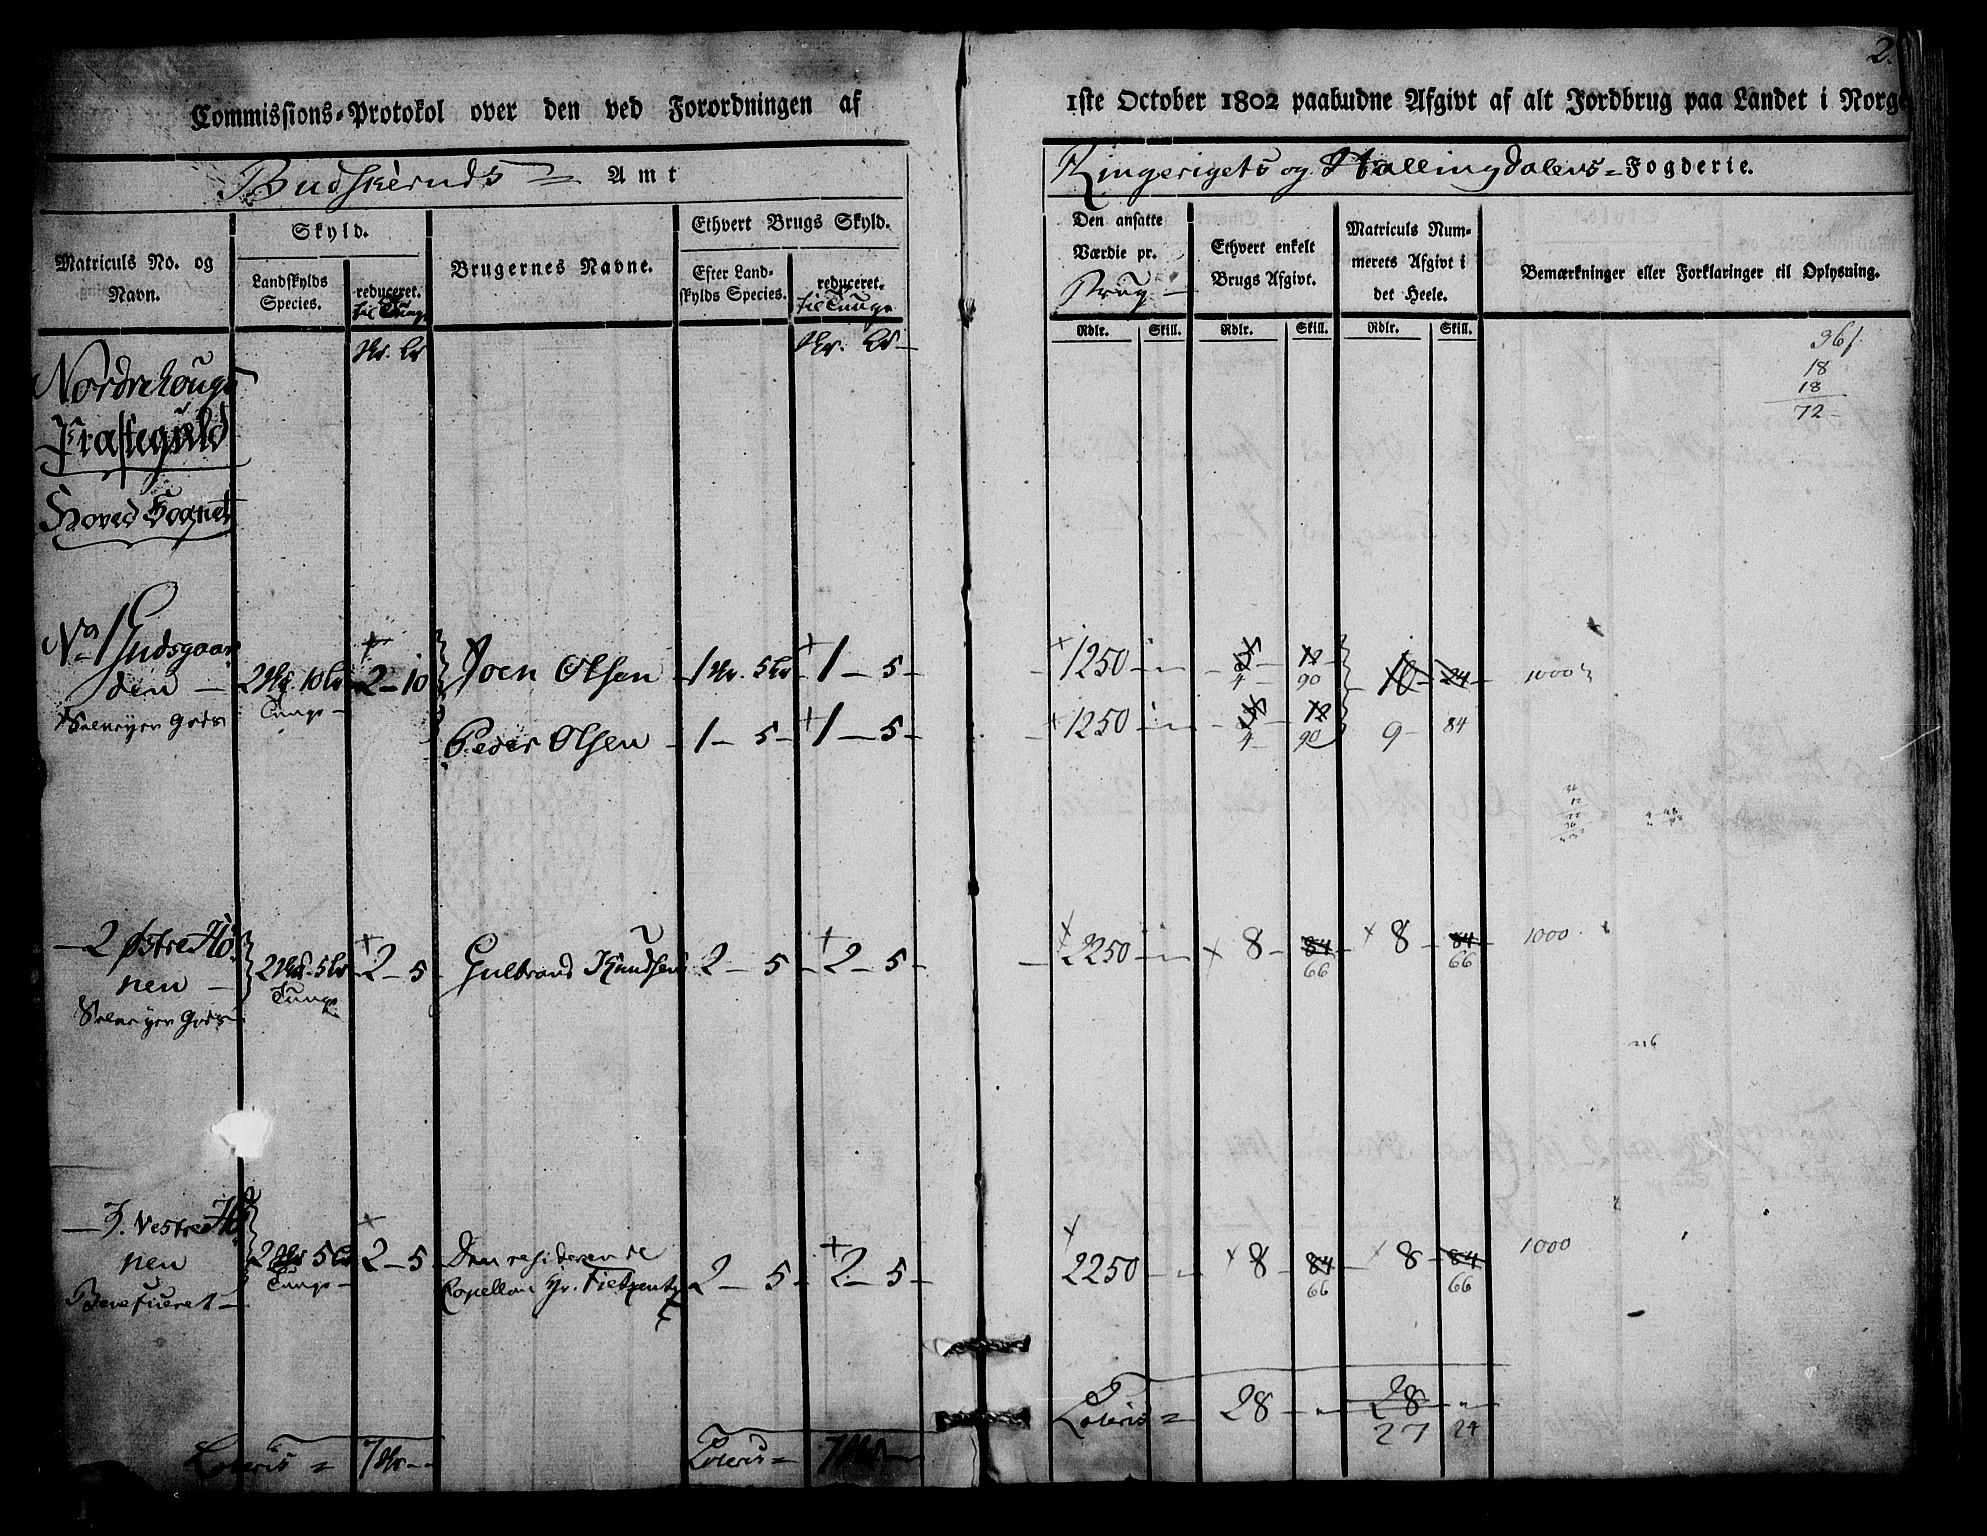 2.
Commissions-Protokol over den ved Forordningen af 1ste October 1802 paabudne Afgivt af alt Jordbrug paa Landet i Norge
Budskeruds Amt
Ringerigets og Hallingdalens Fogderie.
Matriculs No. og Navn.
Skyld.
Landskylds Species.
reduceret.
til Tunge
Brugernes Navne.
Ethvert Brugs Skyld.
Efter Landskylds Species.
reduceret.
til Tunge
Den ansatte Værdie pr.
Brug
Ethvert enkelt Brugs Afgivt.
Matriculs Nummerets Afgivt i det Heele.
Bemærkninger eller Forklaringer til Oplysning.
Rdlr. Skill. Rdlr. Skill. Rdlr. Skill.
36
18
18
72
Nordrehougs
Præstegield
Hoved Sognet
No 1 Gudsgaarden 2 10 2-10 Joen Olsen 1 5 1-5 1250 4 90 10 24 1000
Tunge
Peder Olsen 1-5 1-5 1250 4 90 9 84
Gods
2 Østre Hönen 2 5 2-5 Gulbrand Knudsen 2-5 2-5 2250 8 84 8 84 1000
Tunge 66 66
Gods
3. Vestre Hönen 2 5 2-5 Den residerende 2-5 2-5 2250 8 84 8 84 1000
Tunge Capellan Hr. 66 66
Beneficeret
Lateris 28 28
27 24
Lateris 7 Lateris 7